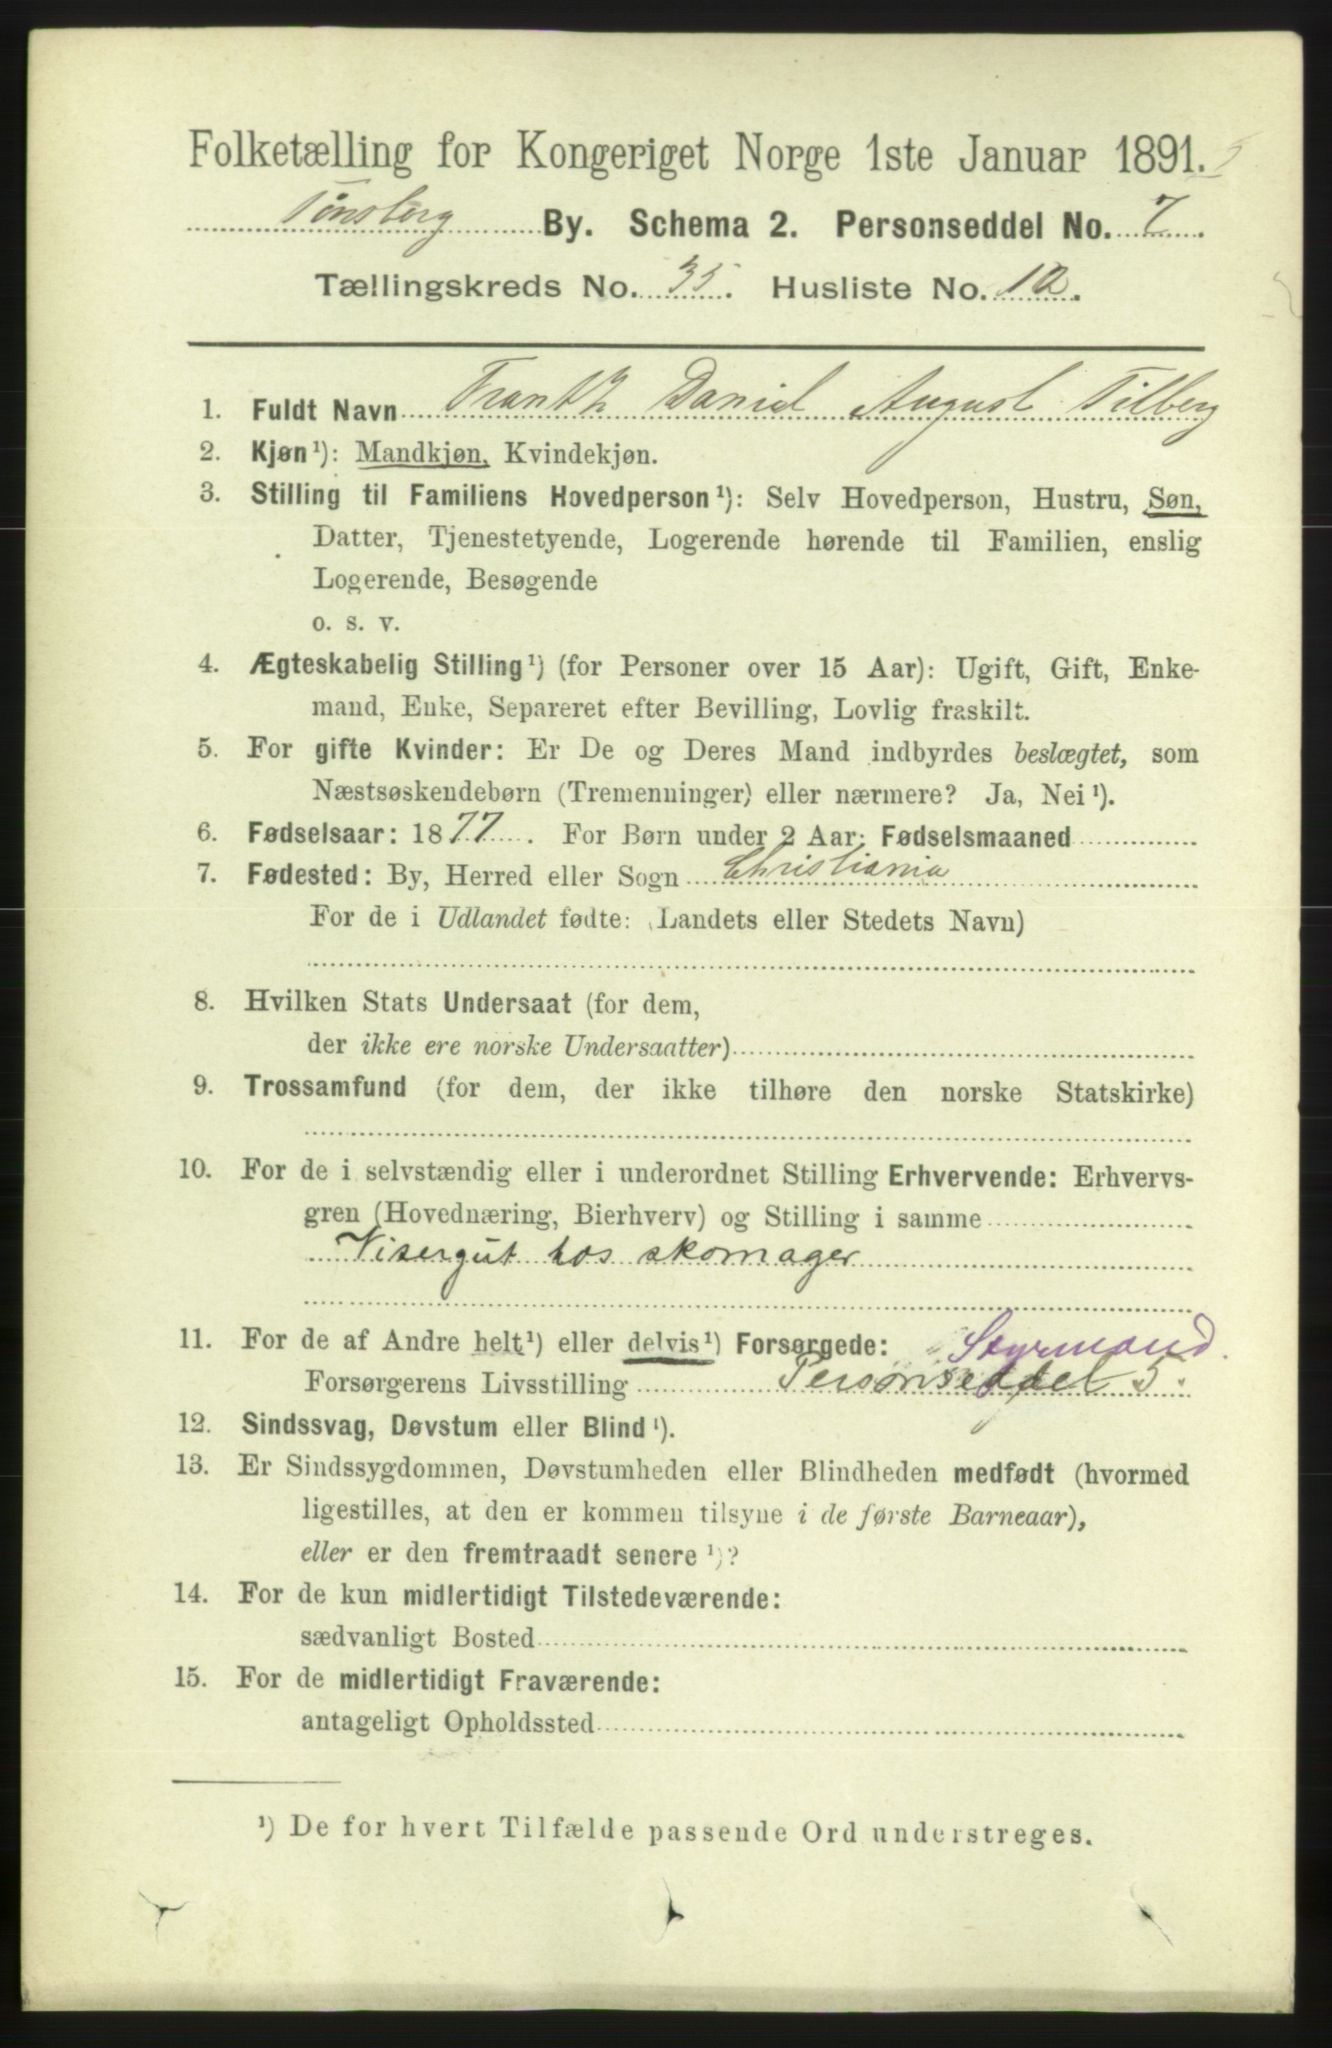 Folketælling for Kongeriget Norge 1ste Januar 1891.
Tønsberg By. Schema 2. Personseddel No. 7.
Tællingskreds No. 35. Husliste No. 10.
1. Fuldt Navn Trantz Daniel August Tilberg
2. Kjøn¹): Mandkjøn, Kvindekjøn.
3. Stilling til Familiens Hovedperson¹): Selv Hovedperson, Hustru, Søn,
Datter, Tjenestetyende, Logerende hørende til Familien, enslig
Logerende, Besøgende
o. s. v.
4. Ægteskabelig Stilling¹) (for Personer over 15 Aar): Ugift, Gift, Enke-
mand, Enke, Separeret efter Bevilling, Lovlig fraskilt.
5. For gifte Kvinder: Er De og Deres Mand indbyrdes beslægtet, som
Næstsøskendebørn (Tremenninger) eller nærmere? Ja, Nei¹).
6. Fødselsaar: 1877. For Børn under 2 Aar: Fødselsmaaned
7. Fødested: By, Herred eller Sogn Christiania
For de i Udlandet fødte: Landets eller Stedets Navn)
8. Hvilken Stats Undersaat (for dem,
der ikke ere norske Undersaatter)
9. Trossamfund (for dem, der ikke tilhøre den norske Statskirke)
10. For de i selvstændig eller i underordnet Stilling Erhvervende: Erhvervs-
gren (Hovednæring, Bierhverv) og Stilling i samme
Visergut hos skomager
11. For de af Andre helt¹) eller delvis¹) Forsørgede: Styrmand.
Forsørgerens Livsstilling Personseddel 5.
12. Sindssvag, Døvstum eller Blind¹).
13. Er Sindssygdommen, Døvstumheden eller Blindheden medfødt (hvormed
ligestilles, at den er kommen tilsyne i de første Barneaar),
eller er den fremtraadt senere¹)?
14. For de kun midlertidigt Tilstedeværende:
sædvanligt Bosted
15. For de midlertidigt Fraværende:
antageligt Opholdssted
¹) De for hvert Tilfælde passende Ord understreges.